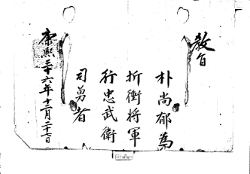 教旨
朴尚郁為
折衝將軍
行忠武衛
司勇者
康熙三十六年十二月二十日